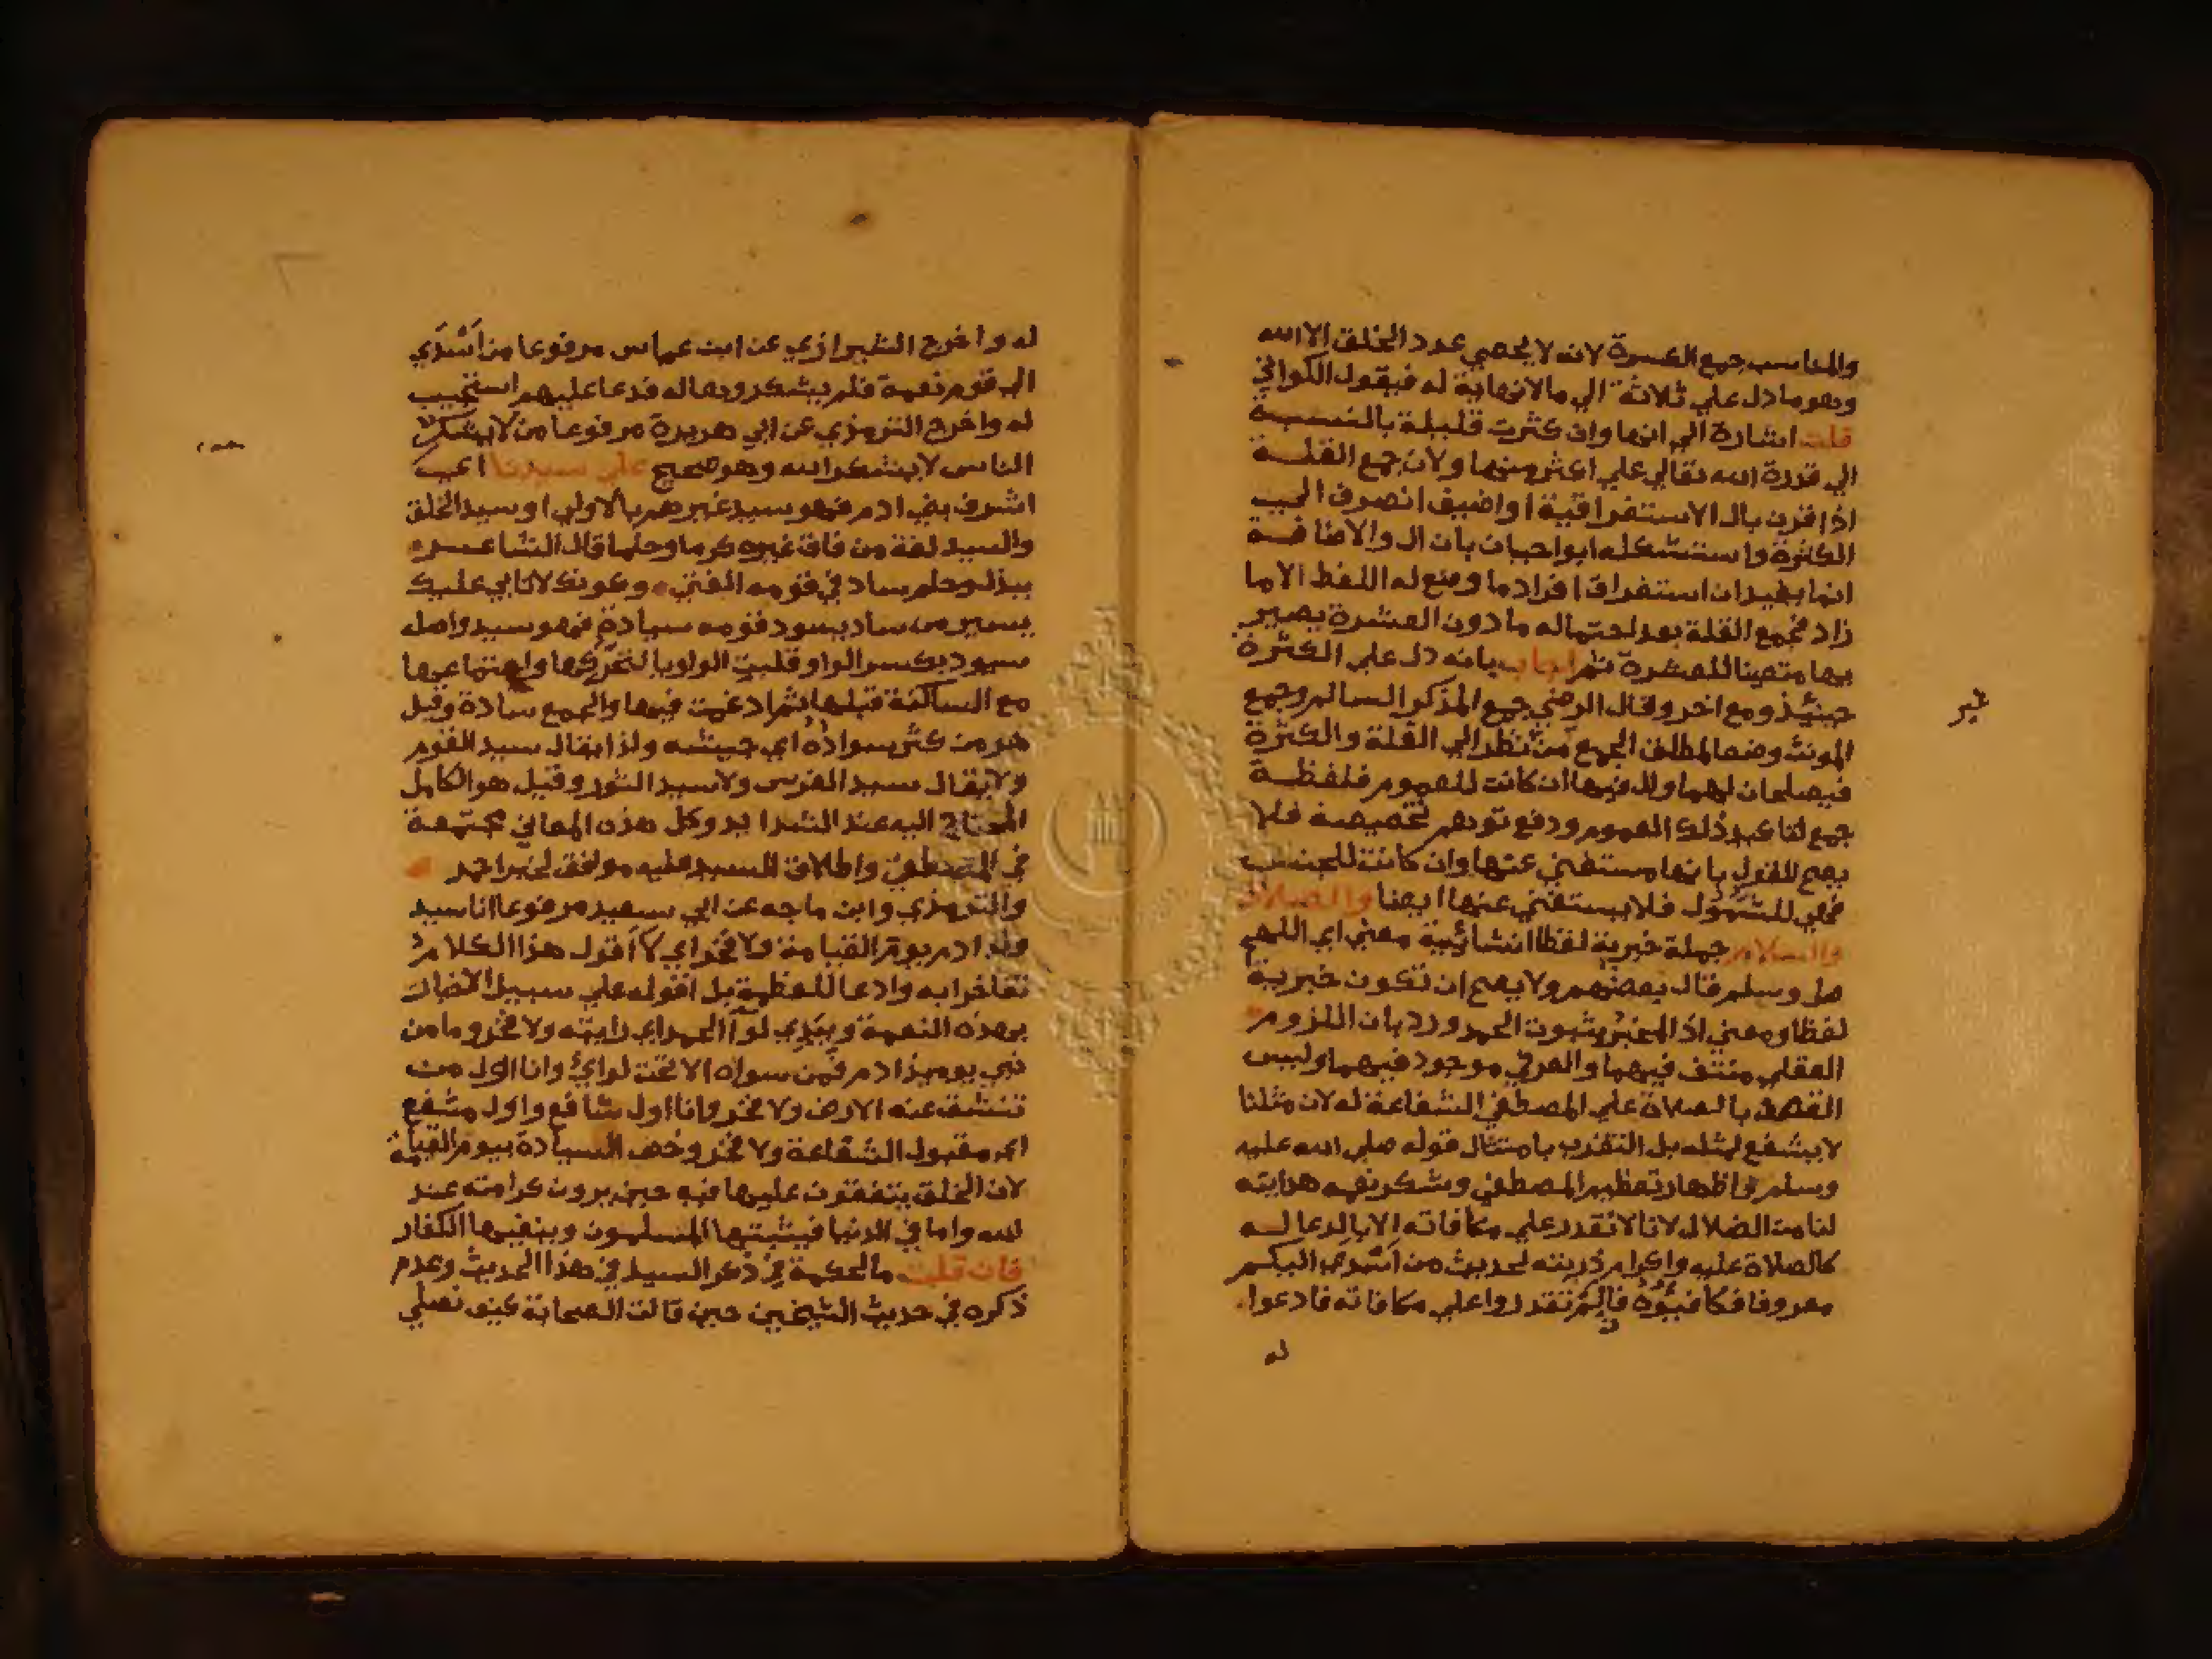 والمناسب جمع الكسرة لانه لا يحصي عدد الخلق الا الله
وهو ما دل علي ثلاثة الي مالانهاية له فيقول الكوافي
قلت اشارة الي انها وان كثرت قليلة بالنسبة
الي قدرة الله تعالي علي اكثر منها ولان جمع القلة
اذا قرن بال الاستغراقية او اضيف انصرف الي
الكثرة واستشكله ابو حيان بان ال والاضافة
انما يفيدان استغراق افراد ما وضع له اللفظ الا ما
زاد فجمع القلة بعد احتماله ما دون العشرة يصير
بها متعينا للعشرة ثم اجاب بانه دل علي الكثرة
حينئذ ومع اخر وقال الرضي جمع المذكر السالم وجمع
المونث وضعا لمطلق الجمع من نظر الي القلة والكثرة
فيصلحان لهما وال فيها ان كانت للعموم فلفظة
جمع لتاكيد ذلك العموم ودفع توهم تخصيصه فلا
يصح للقول بانها مستغني عنها وان كانت للجنس
فهي للشمول فلا يستغني عنها ايضا والصلاة
والسلام جملة خبرية لفظا انشائية معني اي اللهم
صل وسلم قال بعضهم ولا يصح ان تكون خبرية
لفظا ومعني اذ المخبر بثبوت الحمد ورد بان اللزوم
العقلي منتف فيهما والعرفي موجود فيهما وليس
القصد بالصلاة علي المصطفي الشفاعة له لان مثلنا
لا يشفع لمثله بل التقرب بامتثال قوله صلي الله عليه
وسلم واظهار تعظيم المصطفي وشكر نعمه هدايته
لنا من الضلال لانا لا نقدر علي مكافاته الا بالدعا له
كالصلاة عليه واكرام ذريته لحديث من اسدي اليكم
معروفا فكافيوه فان لم تقدروا علي مكافاته فادعوا
له
له واخرج الشيرازي عن ابن عباس مرفوعا من اسدي
الي قوم نعمة فلم يشكروها له فدعا عليهم استجيب
له واخرج الترمذي عن ابي هريرة مرفوعا من لا يشكر
الناس لا يشكر الله وهو صحيح علي سيدنا اي
اشرف بني ادم فهو سيد غيرهم بالاولي او سيد الخلق
والسيد لغة من فاق غيره كرما وحلما قال الشاعر
ببذل وحلم ساد في قومه الفتي وكونك اياه عليك
يسير من ساد يسود قومه سيادة فهو سيد واصله
سيود بكسر الواو قلبت الواو يا لتحركها واجتماعها
مع الساكنة قبلها ثم ادغمت فيها والجمع سادة وقيل
هو من كثر سواده اي جيشه ولذا يقال سيد القوم
ولا يقال سيد الفرس ولا سيد الثور وقيل هو الكامل
المحتاج اليه عند الشدايد وكل هذه المعاني مجتمعة
في المصطفي واطلاق السيد عليه موافق لخبر احمد
والترمذي وابن ماجه عن ابي سعيد مرفوعا انا سيد
ولد ادم يوم القيامة ولا فخر اي لا اقول هذا الكلام
تفاخرا به وادعا للعظمة بل اقوله علي سبيل
بهذه النعمة وبيدي لوا الحمد اي رايته ولا فخر وما من
نبي يوميذ ادم فمن سواه الا تحت لواي وانا اول من
تنشق عنه الارض ولا فخر وانا اول شافع واول مشفع
اي مقبول الشفاعة ولا فخر وخص السيادة بيوم القيامة
لان الخلق يتفقون عليها فيه حين يرون كرامته عند
الله واما في الدنيا فيثبتها المسلمون وينفيها الكفار
فان قلت ما الحكمة في ذكر السيد في هذا الحديث وعدم
ذكره في حديث الشيخين حين قالت الصحابة كيف نصلي